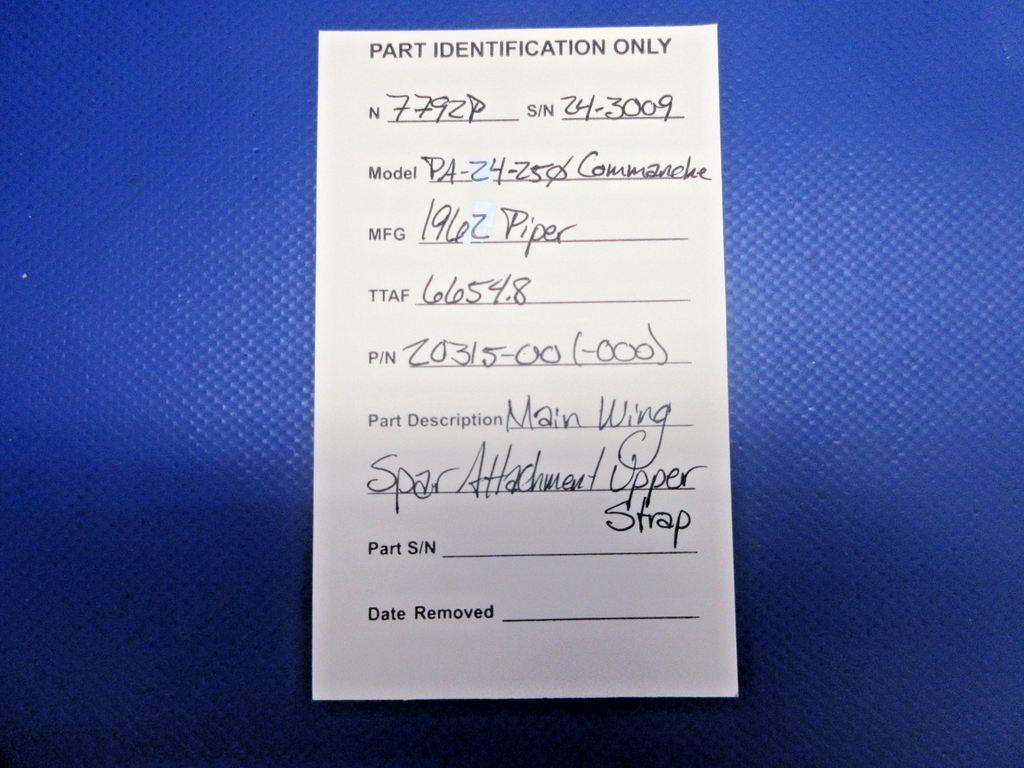 PART IDENTIFICATION ONLY
N 7792P S/N 24-3009
Model PA-24-250 Commanche
MFG 1962 Piper
TTAF 6654.8
P/N 20315-00 (-000)
Part Description Main Wing
Spar Attachment Upper
Strap
Part S/N
Date Removed